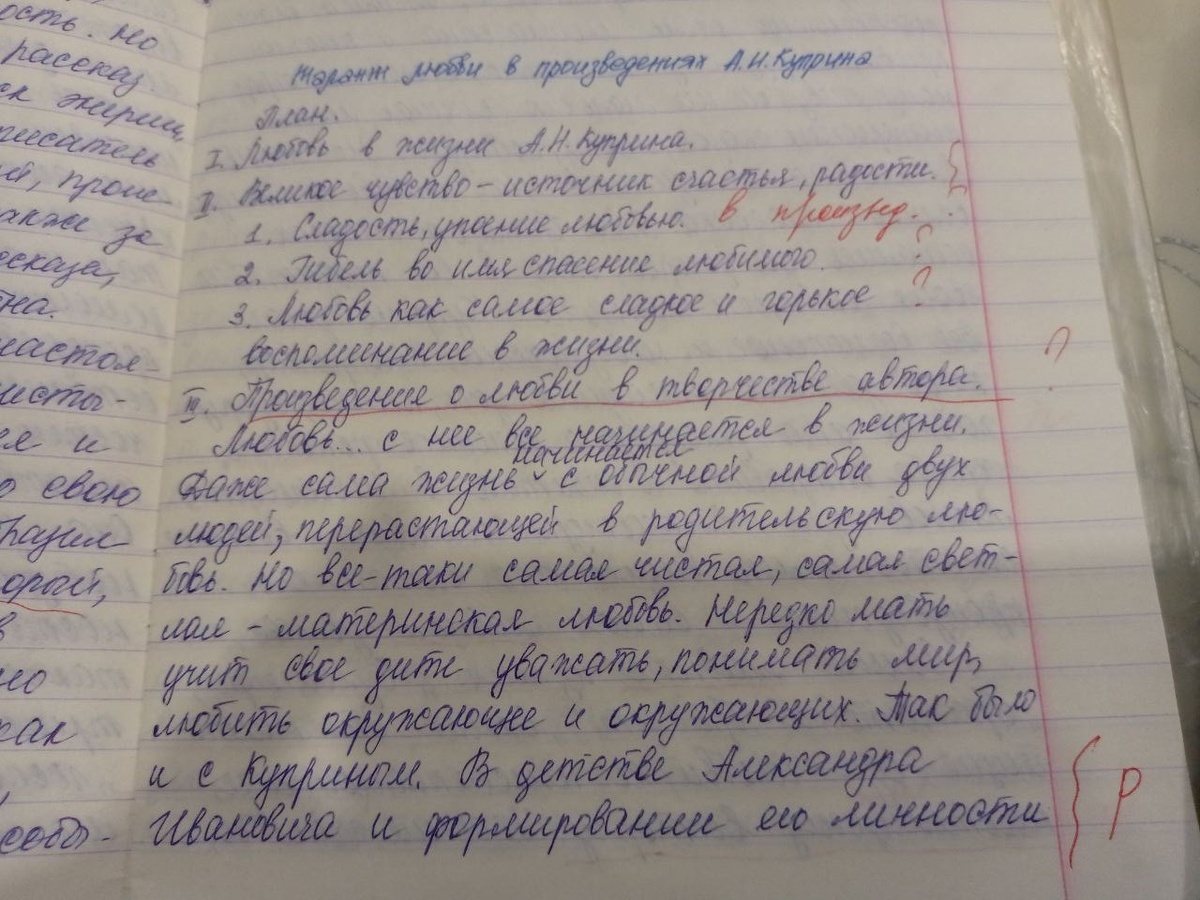 ость. Но
рассказ.
писатель
ой, прои-
акже за
ссказа,
настоя-
исты-
ся и
о свою
орый,
в
но
как
собы-
Талант любви в произведениях А.И.Куприна
План.
I. Любовь в жизни А.И.Куприна.
II. Великое чувство - источник счастья, радости. {
1. Сладость, упоение любовью. в произвед. .
2. Гибель во имя спасение любимого. ?
3. Любовь как самое сладкое и горькое ?
воспоминание в жизни.
?
III. Произведение о любви в творчестве автора.
Любовь... с нее все начинается в жизни.
начинается
Даже сама жизнь ˇ с обычной любви двух
людей, перерастающей в родительскую лю-
бовь. Но все-таки самая чистая, самая свет-
лая - материнская любовь. Нередко мать
учит свое дитя уважать, понимать мир,
любить окружающее и окружающих. Так было
и с Куприным. В детстве Александра
Ивановича и формировании его личности
{ Р